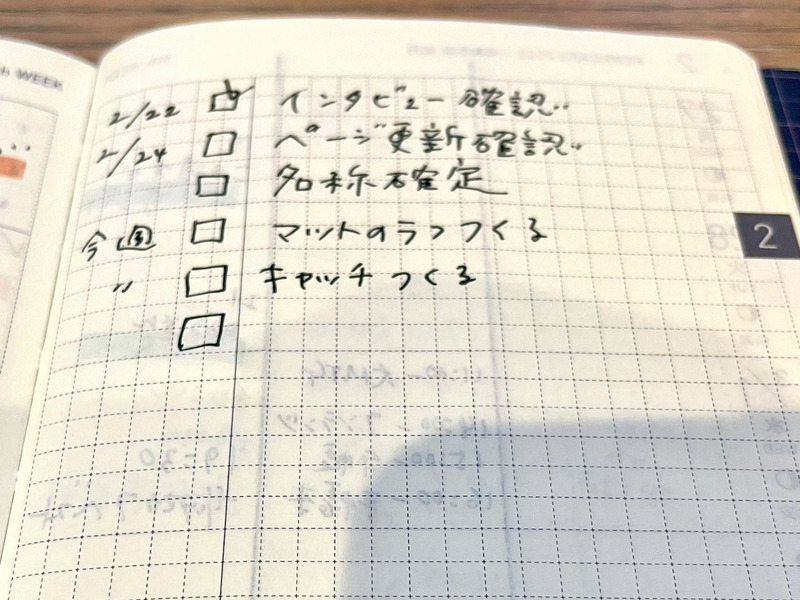 WEEK
2/22 ☑ インタビュー確認..
2/24 □ ページ更新確認..
□ 名称確定
今週 □ マットのラフつくる
〃 □ キャッチつくる
□
2